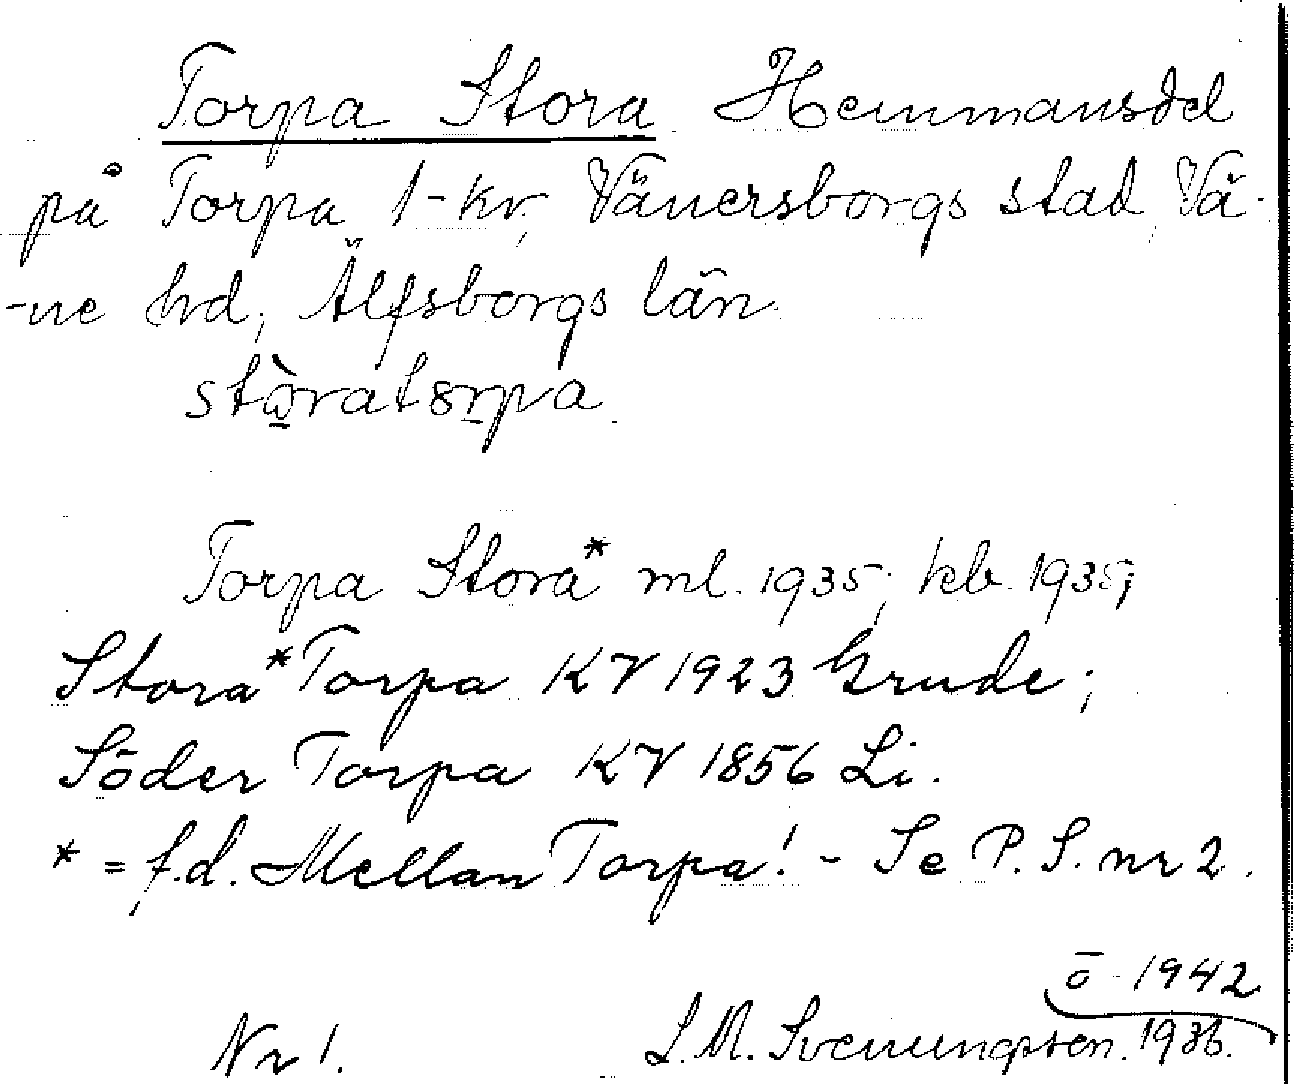 Torpa Stora Hemmansdel
på Torpa 1-kv, Vänersborgs stad, Vä-
-ne hd, Älfsborgs län.
stòratorpa.
Torpa Stora* ml. 1935; kb. 1935;
Stora* Torpa KV 1923 Grude;
Söder Torpa KV 1856 Li.
* = f.d. Mellan Torpa! - Se P.S. nr 2.
ō 1942
Nr 1. L.M. Svenungsson. 1936.